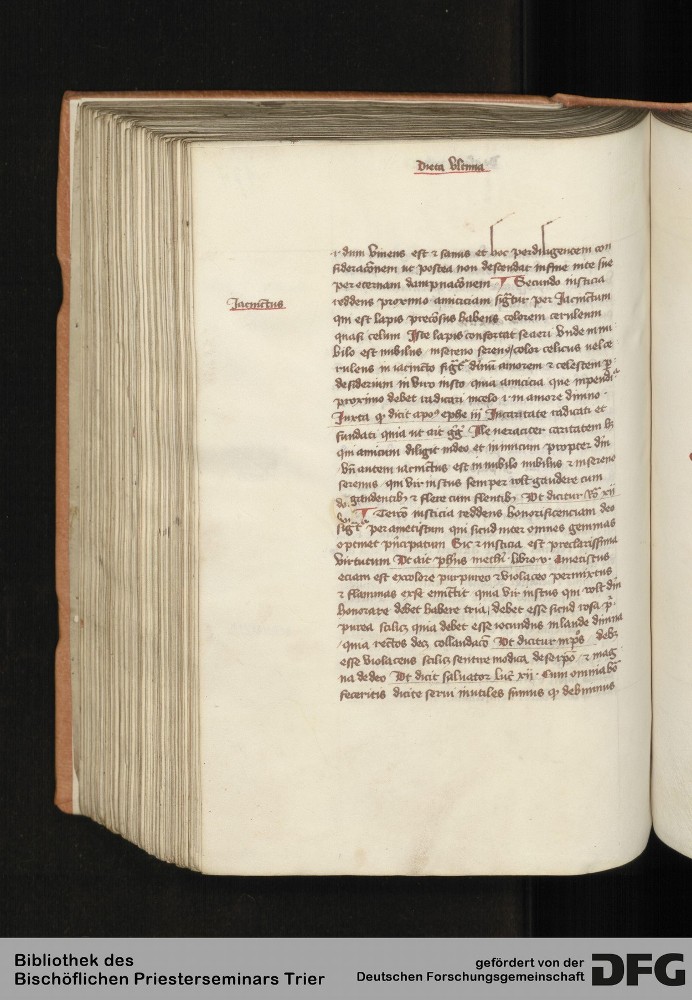 Dieta Vltima
.i. dum viuens est et sanus et hoc per diligentem con
sideraconem ut postea non descendat in fine vite sue
per eternam dampnaconem ¶ Secundo iusticia
reddens proximo amiciciam sigtur per Jacinctum
Jacinctus
qui est lapis preciosus habens colorem ceruleum
quasi celum Iste lapis confortat se aeri Unde in nu
bilo est nubilus in sereno seren color celicus vel ce
ruleus in iacincto sigt diuinum amorem et celestem
desiderium in viro iusto quia amicicia que inpendit
proximo debet radicari in celo .i. in amore diuino
Juxta q dicit apo ephe iij In caritate radicati et
fundati quia ut ait gg Ille veraciter caritatem hz
qui amicum diligit in deo et inimicum propter dm
Vn autem iacinctus est in nubilo nubilus et in sereno
serenus qui vir iustus semper volt gaudere cum
gaudentibz et flere cum flentibz Vt dicitur Ro xij
¶ Tercio iusticia reddens honorificenciam deo
sigtur per ametistum qui sicud inter omnes gemmas
optinet pncipatum Sic et iusticia est preclarissima
virtutum Vt ait phus methi libro v Ametistus
eciam est ex colore purpureo et violaceo permixtus
et flammas ex se emittit quia vir iustus qui volt dm
honorare debet habere tria, debet esse sicud rosa p
purea scilicz quia debet esse iocundus in laude diuina
quia rectos decz collaudaco Vt dicitur in ps debz
esse violaceus scilicz sentire modica de se ipo et mag
na de deo Vt dicit saluator luc xij Cum omnia bo
feceritis dicite serui inutiles sumus q debuimus
Bibliothek des
Bischöflichen Priesterseminars Trier
gefördert von der
Deutschen Forschungsgemeinschaft
DFG